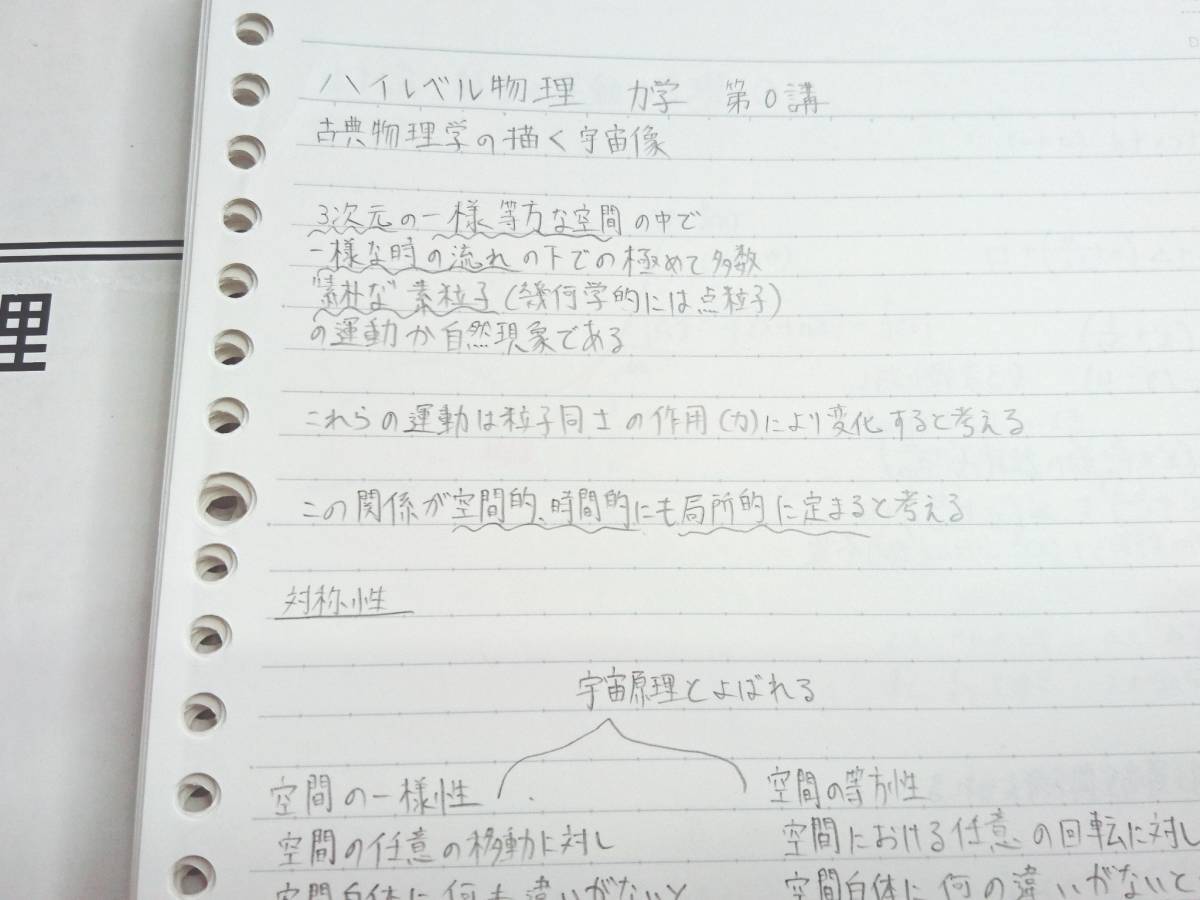 ハイレベル物理 力学 第0講
古典物理学の描く宇宙像
3次元の一様等方な空間の中で
一様な時の流れの下での極めて多数
"素朴な"素粒子(幾何学的には点粒子)
の運動が自然現象である
これらの運動は粒子同士の作用(力)により変化すると考える
この関係が空間的、時間的にも局所的に定まると考える
対称性
宇宙原理とよばれる
空間の一様性
空間の任意の移動に対し
空間自体に何も違いがないと
空間の等方性
空間における任意の回転に対し
空間自体に何の違いがないと
理